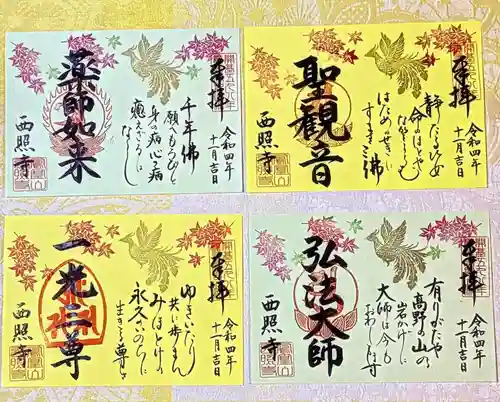 奉拝
令和四年
十一月吉日
千年佛
願へもろびと
身の病心の病
癒えざるは
なし
薬師如来
西照寺
奉拝
令和四年
十一月吉日
静かなるひめ
はための
すすき三佛
聖観音
西照寺
奉拝
令和四年
十一月吉日
ゆきいたり
共に歩まん
みほとけの
永久のいのちに
生きる尊さ
一光三尊
西照寺
奉拝
令和四年
十一月吉日
有りがたや
高野の山の
岩かげに
大師は今も
おわします
弘法大師
西照寺